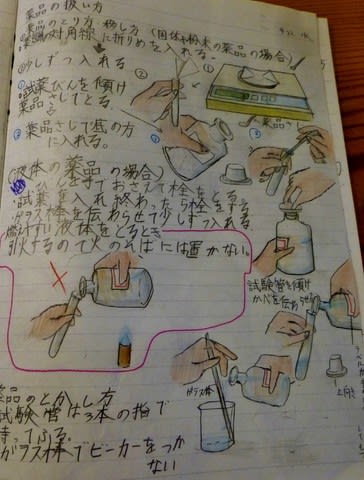 薬品の扱い方
薬品のとり方、移し方（固体や粉末の薬品の場合）
対角線に折りめを入れる。
②少しずつ入れる
①試薬びんを傾け
薬品さじでとる。
②薬品さじで底の方
に入れる。
薬品
（液体の薬品の場合）
びんを手でおさえて栓を
試薬を入れ終わったら栓をする
ガラス棒を伝わらせて少しずつ入れる
燃えやすい液体をとるとき、
引火するので火のそばには置かない。
試験管を傾け
かべを伝わ
ガラス棒
上向き
薬品のとかし方
試験管は3本の指で
持ってふる。
ガラス棒でビーカーをつか
ない